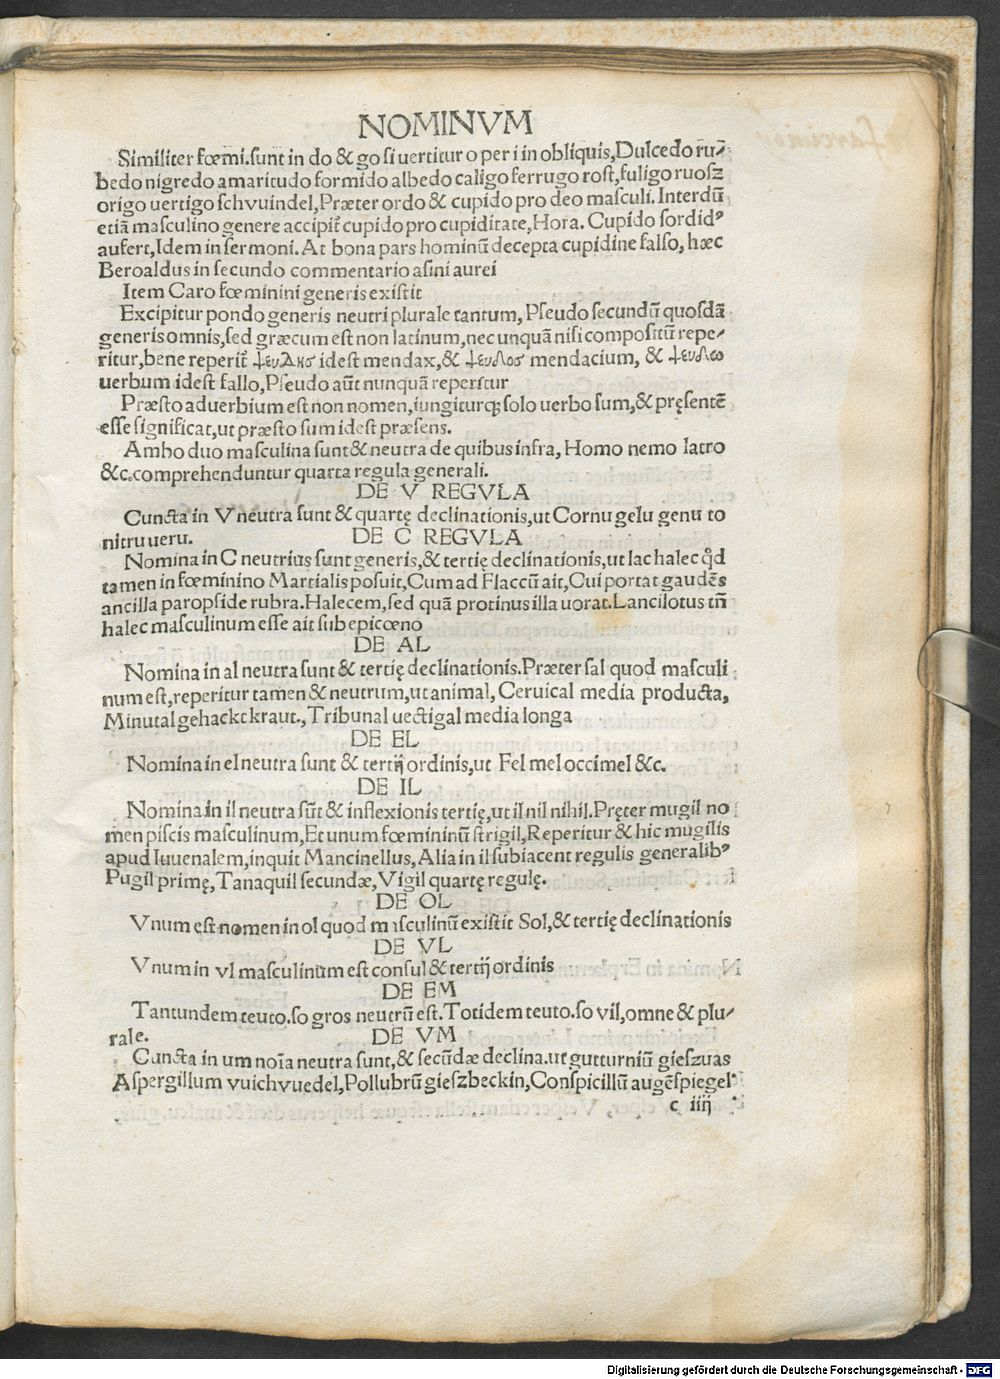 NOMINVM
Similiter fœmi.sunt in do & go si uertitur o per i in obliquis,Dulcedo ru-
bedo nigredo amaritudo formido albedo caligo ferrugo rost,fuligo ruosz
origo uertigo schvuindel,Præter ordo & cupido pro deo masculi. Interdū
etiā masculino genere accipit᷑ cupido pro cupiditate,Hora. Cupido sordidꝰ
aufert,Idem in sermoni. At bona pars hominū decepta cupidine falso, hæc
Beroaldus in secundo commentario asini aurei
Item Caro fœminini generis existit
Excipitur pondo generis neutri plurale tantum, Pseudo secundū quosdā
generis omnis,sed græcum est non latinum,nec unquā nisi compositū repe-
ritur,bene reperit᷑ ψευδης idest mendax,& ψευδος mendacium, & ψευδω
uerbum idest fallo,Pseudo aūt nunquā reperitur
Præsto aduerbium est non nomen,iungiturqꝫ solo uerbo sum,& pręsentē
esse significat,ut præsto sum idest præsens.
Ambo duo masculina sunt & neutra de quibus infra, Homo nemo latro
&c.comprehenduntur quarta regula generali.
DE V REGVLA
Cuncta in V neutra sunt & quartę declinationis,ut Cornu gelu genu to
nitru ueru. DE C REGVLA
Nomina in C neutrius sunt generis,& tertię declinationis,ut lac halec qͦd
tamen in fœminino Martialis posuit,Cum ad Flaccū ait,Cui portat gaudēs
ancilla paropside rubra.Halecem,sed quā protinus illa uorat.Lancilotus tn̄
halec masculinum esse ait sub epicœno
DE AL
Nomina in al neutra sunt & tertię declinationis.Præter sal quod masculi
num est,reperitur tamen & neutrum,ut animal, Ceruical media producta,
Minutal gehackt kraut., Tribunal uectigal media longa
DE EL
Nomina in el neutra sunt & tertij ordinis,ut Fel mel occimel &c.
DE IL
Nomina in il neutra sūt & inflexionis tertię,ut il nil nihil.Pręter mugil no
men piscis masculinum,Et unum fœmininū strigil,Reperitur & hic mugilis
apud Iuuenalem,inquit Mancinellus, Alia in il subiacent regulis generalibꝰ
Pugil primę,Tanaquil secundæ,Vigil quartę regulę.
DE OL
Vnum est nomen in ol quod masculinū existit Sol,& tertię declinationis
DE VL
Vnum in vl masculinum est consul & tertij ordinis
DE EM
Tantundem teuto.so gros neutrū est.Totidem teuto.so vil,omne & plu-
rale. DE VM
Cuncta in um noīa neutra sunt,& secūdæ declina.ut gutturniū gieszuas
Aspergillum vuichvuedel,Pollubrū gieszbeckin,Conspicillū augēspiegel
c iiij
Digitalisierung gefördert durch die Deutsche Forschungsgemeinschaft - DFG